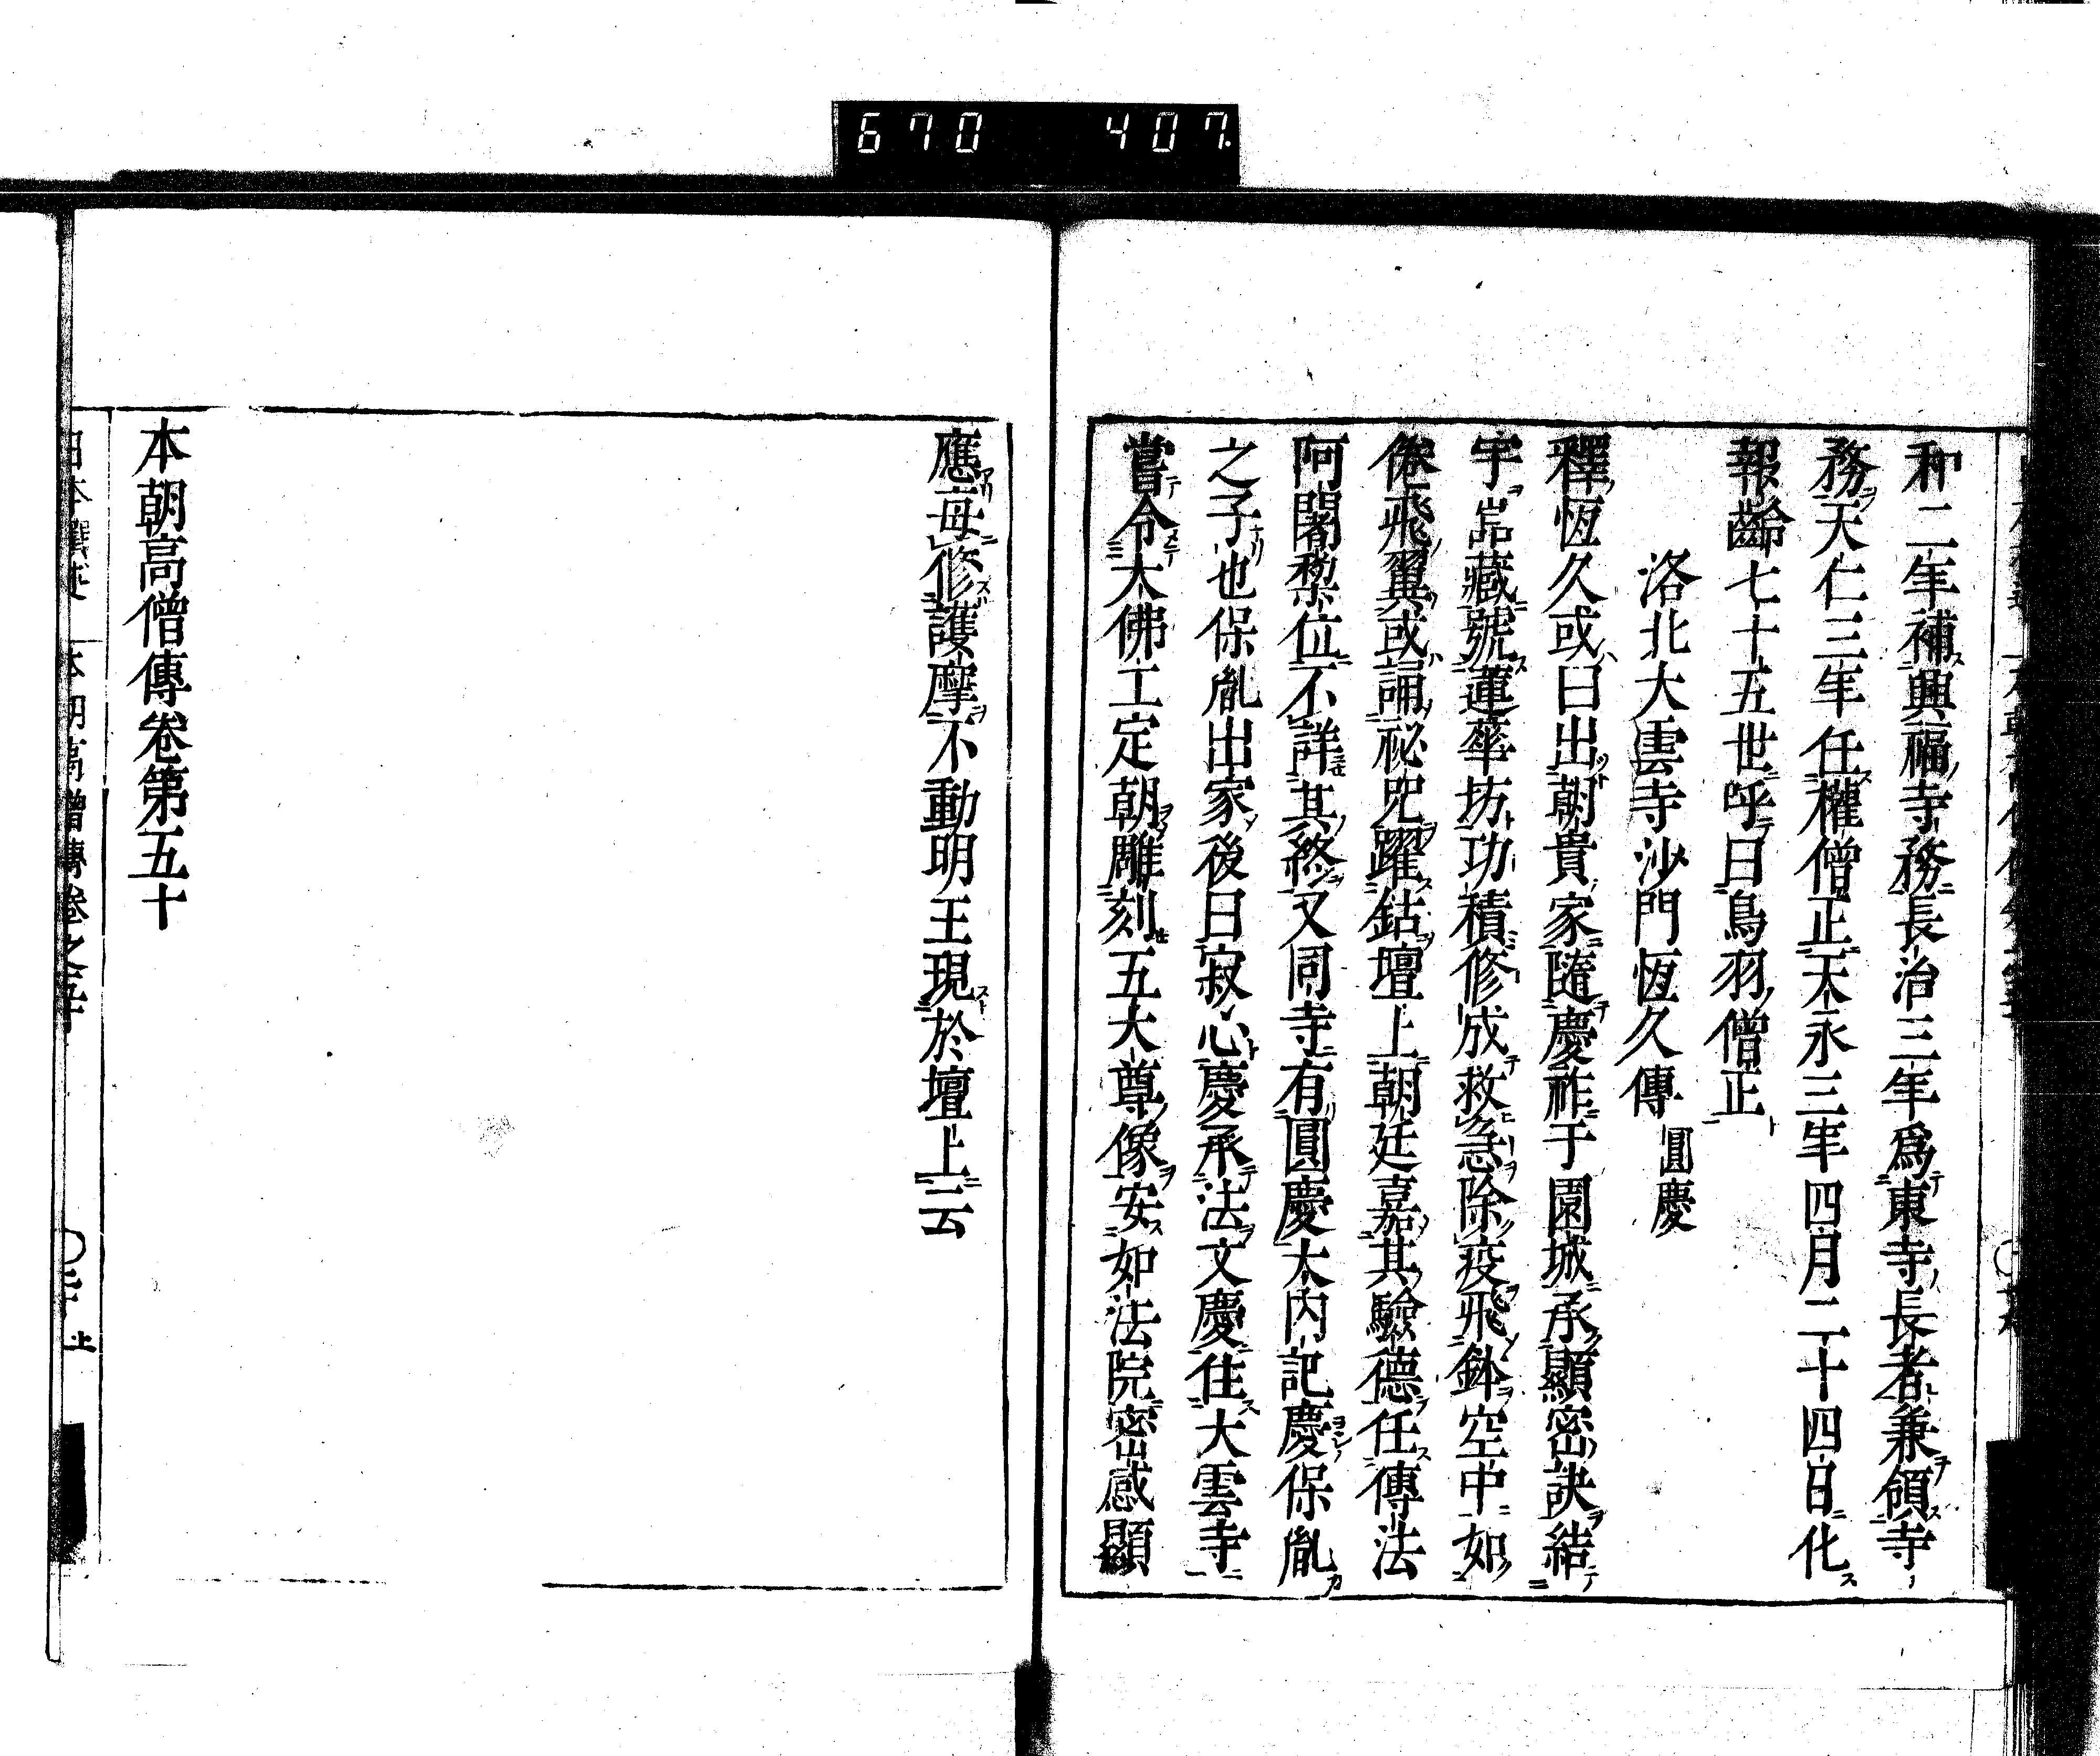 670 407
和二年補興福寺務長治三年爲東寺長者兼領寺
務天仁三年任權僧正天永三年四月二十四日化
報齡七十五世呼曰鳥羽僧正
洛北大雲寺沙門恆久傳 圓慶
釋恆久或曰出朝貴家隨慶祚于園城承顯密訣結
宇嵓藏號蓮華坊功積修成救急除疫飛鉢空中如
倦飛翼或誦祕咒躍鈷壇上朝廷嘉其驗德任傳法
阿闍黎位不詳其終又同寺有圓慶大內記慶保胤
之子也保胤出家後曰寂心慶承法文慶住大雲寺
嘗令大佛工定朝雕刻五大尊像安如法院密感顯
應每修護摩不動明王現於壇上云
本朝高僧傳卷第五十
本朝高僧傳卷之五十